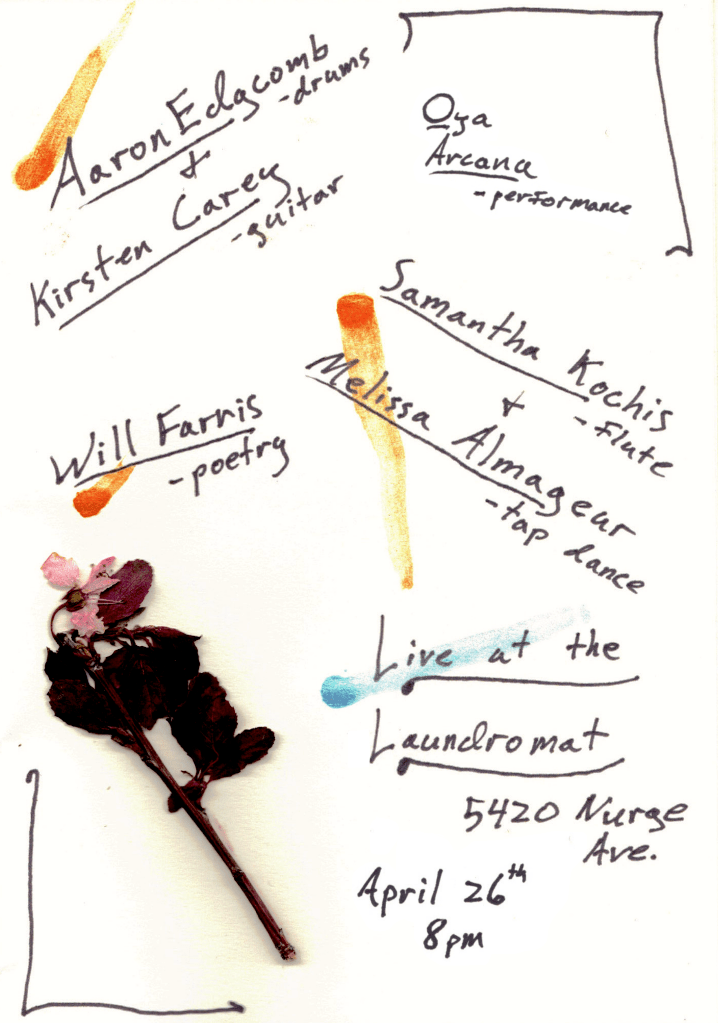 Aaron Edgcomb
-drums
+
Kirsten Carey
-guitar
Oya
Arcana
-performance
Samantha Kochis
-flute
+
Melissa Almaguer
-tap dance
Will Farris
-poetry
Live at the
Laundromat
5420 Nurge
Ave.
April 26th
8pm